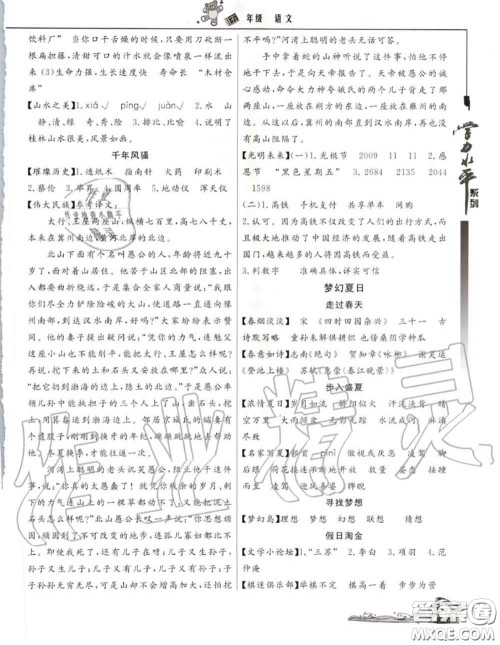 年级 语文
饮料厂” 当你口干舌燥的时候，只要用刀砍断一
根扁担藤，清甜可口的汁水就会像喷泉一样流出
来 (3)生命力强，生长速度快 寿命长 “木材仓
库”
【山水之美】1. xiá√ píng√ juàn√ 2. 水 山
静、清、绿 奇、秀、险 3. 排比、比喻 4. 说明了
桂林山水很美，风景如画。
千年风骚
【璀璨历史】1. 造纸术 指南针 火药 印刷术
2. 蔡伦 3. 毕昇 4. 圆周率 5. 地动仪 浑天仪
【伟大民族】参考译文：
太行、王屋两座山，纵横七百里，高七八千丈，
本来在冀州南边、黄河北岸的北边。
北山下面有个名叫愚公的人，年龄将近九十
岁了，面对着山居住。他苦于山区北部的阻塞，出
入都要曲折绕远，于是集合全家人商量说：“我跟
你们尽全力铲除险峻的大山，使道路一直通到豫
州南部，到达汉水南岸，好吗？”大家纷纷表示赞
同。他的妻子提出疑问说：“凭你的力气，连魁父
这座小山也不能削平，能把太行、王屋怎么样呢？
再说，往哪儿搁挖下来的土和石头？”众人说：
“把它扔到渤海的边上，隐土的北边。”于是愚公率
领儿孙中能挑担子的三个人上了山，凿石头，挖
土，用箕畚运到渤海边上。邻居京城氏的寡妇有
个遗腹子，刚刚换牙的年纪，也蹦蹦跳跳前去帮助
他。冬夏换季，才能往返一次。
河湾上聪明的老头讥笑愚公，阻止他干这件
事，说：“你真的太愚蠢了！就凭你残余的岁月、剩
下的力气连山上的一棵草都动不了，又能把泥土
石头怎么样呢？”北山愚公长叹一声说：“你思想顽
固，顽固到了不可改变的地步，连孤儿寡妇都比不
上。即使我死了，还有儿子在呀；儿子又生孙子，
孙子又生儿子；儿子又有儿子，儿子又有孙子；子
子孙孙无穷无尽，可是山却不会增高加大，还怕挖
不平吗？”河湾上聪明的老头无话可答。
手中拿着蛇的山神听说了这件事，怕他不停
地干下去，于是向天帝报告了。天帝被愚公的诚
心感动，命令大力神夸娥氏的两个儿子背走了那
两座山，一座放在朔方的东部，一座放在雍州的南
边。从这时开始，冀州的南部直到汉水南岸，再也
没有高山阻隔了。
【光明未来】(一)1. 光棍节 2009 11 11 2. 感恩
节 “黑色星期五” 3. 2684 2135 2044
1598
(二)1. 高铁 手机支付 共享单车 网购
2. 认可。因为高铁不仅改变了人们的出行方式，而
且极大地推动了中国经济的发展，使中国走出国
门，越来越多的人将因高铁而受益。
3. 列数字 准确具体，详实可信
梦幻夏日
走过春天
【春烟淡淡】 宋 《四时田园杂兴》 三十一 古
诗既写略 童孙未解供耕织 也傍桑阴学种瓜
步入盛夏
【浓情夏日】
寻找梦想
【梦幻岛】理想 梦想 幻想 联想 猜想
假日淘金
【文学小论坛】1. “三苏” 2. 李白 3. 项羽 4. 范
仲淹
【棋迷俱乐部】举棋不定 棋高一着 步步为营
学力水平
系列
作业精灵
答案圈
MXQE.COM